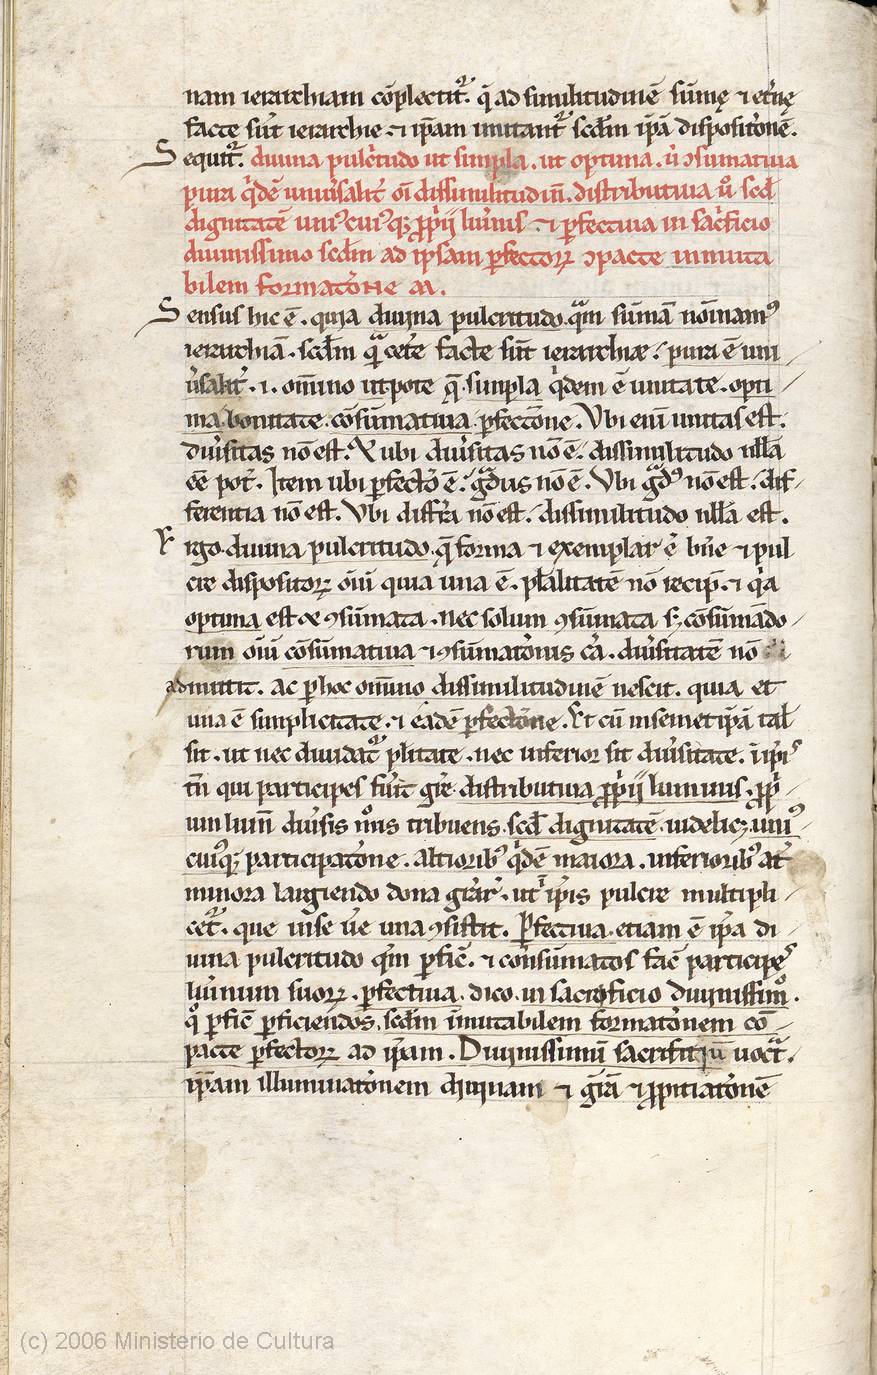 nam ierarchiam cõplectit᷑. q̃ ad similitudinẽ sũmę ⁊ et̾nę
facte sũt ierarchie ⁊ ip̃am imitant᷑ scđm ip̃ã dispositõnẽ.
Sequit᷑. diuina pulc̾tudo ut simpla. ut optima. ut ɔsumatiua
puri q̾dẽ uniu̾salit̾ oĩ dissimilitudiñ. distributiua ũ scđ
dignitatẽ uniꝰcuiꝰqꝫ ꝓp̾ij luĩnis ⁊ ꝑfectiua in sac̾ficio
diuinissimo scđm ad ipsam ꝑfectoꝝ ɔpacte inmuta
bilem formatõne
Sensus hic ẽ. quia diuina pulcritudo. quã sũmã noĩnamꝰ
ierarchiã. scđm quã cet̾e facte sũt ierarchiæ. puri ẽ uni
u̾salit̾. .i. om̃ino utpote q̃ simpla q̾dem ẽ unitate. opti
ma bonitate. cõsũmatiua ꝑfectõne. Vbi eiñ unitas est.
diu̾sitas nõ est. Et ubi diu̾sitas nõ ẽ. dissimilitudo nlła
eẽ pot̾. Item ubi ꝑfectõ ẽ. gᷓdus nõ ẽ. Vbi gᷓdꝰ nõ est. dif
ferentia nõ est. Vbi diffr̃a nõ est. dissimilitudo nlła est.
Ergo diuina pulcritudo. q̃ forma ⁊ exemplar ẽ bñe ⁊ pul
cre dispositoꝝ oĩũ quia una ẽ. plałitatẽ nõ recip̃. ⁊ q̾a
optima est ⁊ ꝯsũmata. nec solum ꝯsũmata sꝫ cõsũmãdo
rum oĩũ cõsũmatiua ⁊ ꝯsũmatõnis cã. diu̾sitatẽ nõ
admittit. ac ꝑ hoc om̃ino dissimilitudinẽ nescit. quia et
una ẽ simplicitate. ⁊ eadẽ ꝑfectõne. Et cũ in semetip̃ã tał
sit. ut nec diuidat᷑ plitate. nec inferior sit diu̾sitate. ĩ ip̃iꝰ
tñ qui participes fiũt gr̃e distributiua ꝓp̾ij luminis. ꝓp̾
um lum̃ diu̾sis m̊is tribuens. scđ dignitatẽ. uidelicꝫ uniꝰ
cuiꝰqꝫ participatõne. altioribꝰ q̾dẽ maiora. inferioribꝰ at̃
minora largiendo dona gr̃ar̃. ut i ip̃is pulcre multipli
cet᷑. que in se u̾e una ꝯsistit. Perfectiua etiam ẽ ip̃a di
uina pulcritudo qm̃ ꝑficẽ. ⁊ consũmatos facẽ participeſ
luminum suoꝝ. ꝑfectiua. dico. in sacrificio diuinissimo.
q̊ ꝑfiẽ ꝑficiendos. scđm ĩmutabilem formatõnem cõ
pacte ꝑfectoꝝ ad ip̃am. Diuinissimũ sacrificiũ uocat.
ip̃am illuminatõnem diuinam ⁊ gr̃ã ⁊ ꝓpitiatõnẽ
(c) 2006 Ministerio de Cultura